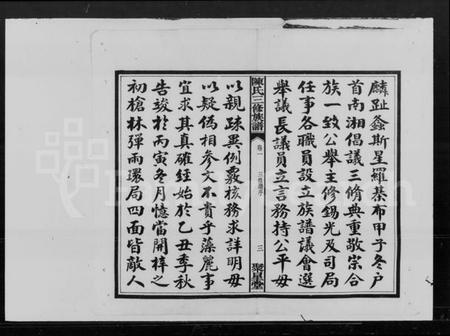 麟趾螽斯星羅棊布甲子冬戶
首南湘倡議三修典重敬崇合
族一致公舉主修錫光及司局
任事各職員設立族譜議會選
舉議長議員立言務持公平毋
陳氏三修族譜
卷一
三修譜序
三
聚星堂
以親疎異例覈核務求詳明毋
以疑僞相參文不貴乎藻麗事
宜求其真確經始於乙丑季秋
告竣於丙寅冬月憶當開梓之
初槍林彈雨環局四面皆敵人